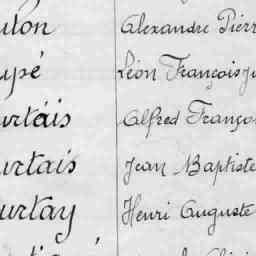 uton Alexandre Pierr
upé Léon François Ju
urtais Alfred Franço
urtais Jean Baptiste
urtay Henri Auguste